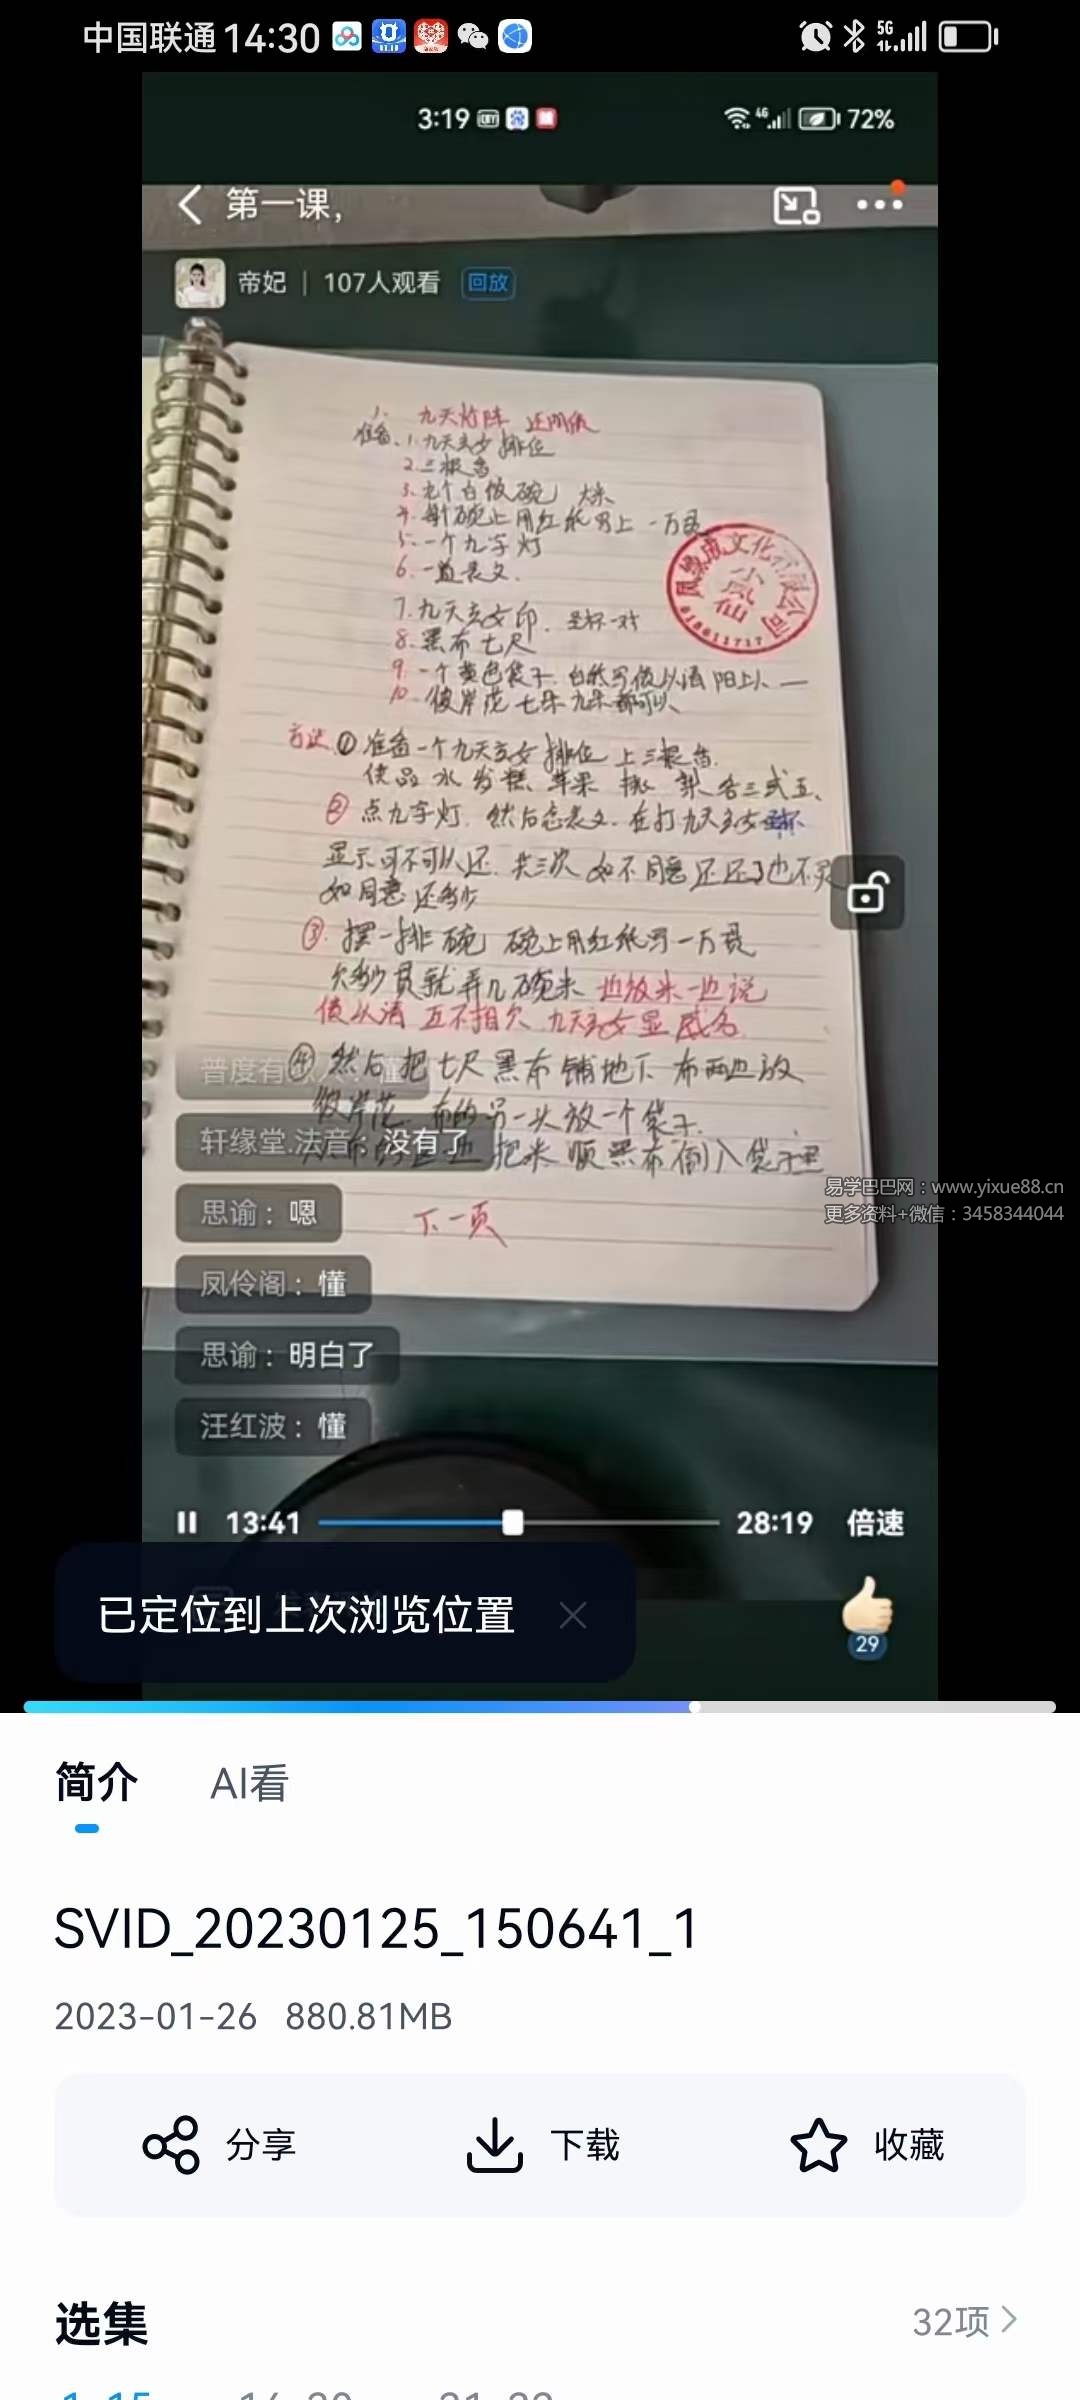 中国联通 14:30
3:19
72%
第一课，
帝妃 | 107人观看 回放
1. 九天灯阵 还阴债
准备、1.九天玄女排位
2.三根香
3.九个白饭碗 大米
4.每个碗上用红纸写上一万贯
5.一个九字灯
6.一道表文.
7.九天玄女印.
8.黑布七尺
9.一个黄色袋子.
10.彼岸花七朵九朵都可以、
凤缘成文化有限公司
小凤仙
方法①准备一个九天玄女排位上三根香.
供品水发糕、苹果 桃 梨各三或五、
②点九字灯.然后念表文.在打九天玄女圣杯
显示可不可以还.共三次如不同意还还了也不灵
如同意还多少
③.摆一排碗 碗上用红纸写一万贯
欠多少贯就弄几碗米 边放米一边说
债以清 互不相欠 九天玄女显威名
④然后把七尺黑布铺地下 布两边放
彼岸花.布的另一头放一个袋子.
把米顺黑布倒入袋子里
下一页
普度有
轩缘堂.法音：没有了
思谕：嗯
凤伶阁：懂
思谕：明白了
汪红波：懂
易学巴巴网：www.yixue88.cn
更多资料+微信：3458344044
13:41
28:19 倍速
已定位到上次浏览位置
29
简介 AI看
SVID_20230125_150641_1
2023-01-26 880.81MB
分享 下载 收藏
选集 32项